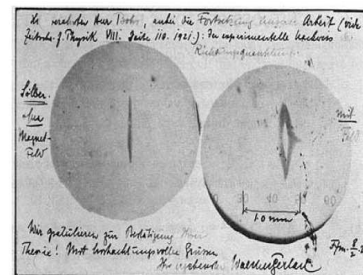 verehrter Herr Bohr, anbei die Fortsetzung unserer Arbeit (vide
Zeitschr. f. Physik VIII. Seite 110. 1921.): Der experimentelle Nachweis
Richtungsquantelung.
Silber
ohne
Magnet-
feld
mit
Feld
1.0 mm
Wir gratulieren zur Bestätigung Ihrer
Theorie! Mit hochachtungsvollen Grüssen
Ihr ergebenster Walther Gerlach